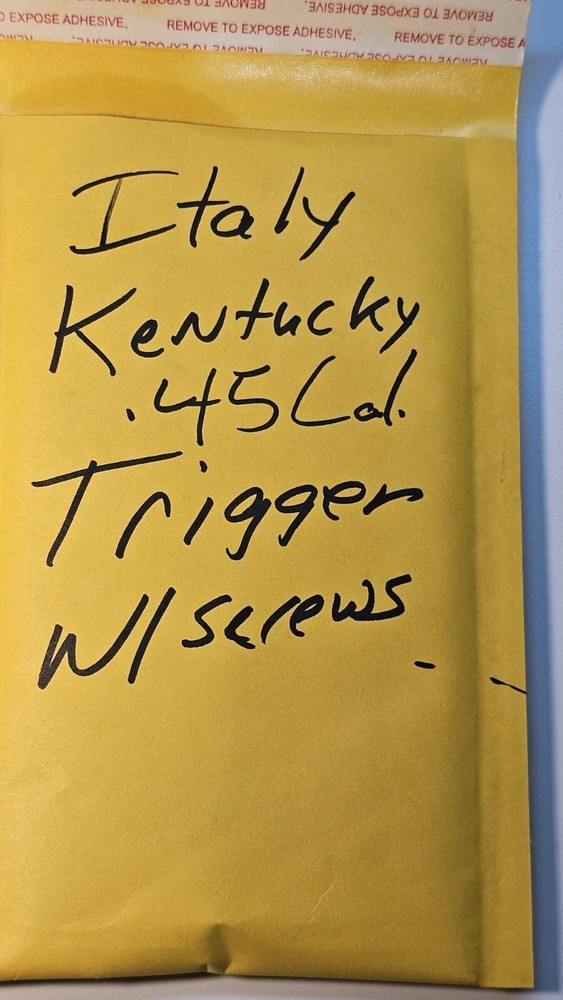 REMOVE TO EXPOSE ADHESIVE.
EXPOSE ADHESIVE. REMOVE TO EXPOSE ADHESIVE. REMOVE TO EXPOSE A
REMOVE TO EXPOSE ADHESIVE.
Italy
Kentucky
.45 Cal.
Trigger
W/screws